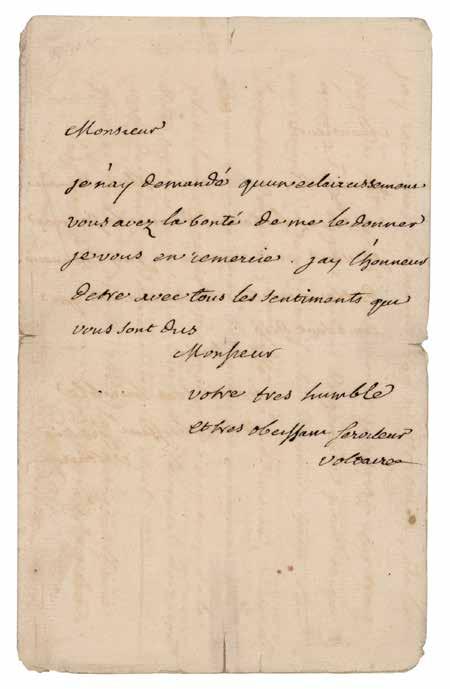 Monsieur
je n'ay demandé qu'un eclaircissement
vous avez la bonté de me le donner
je vous en remercie. j'ay l'honneur
detre avec tous les sentiments qui
vous sont dus
Monsieur
votre tres humble
et tres obeissant serviteur
voltaire